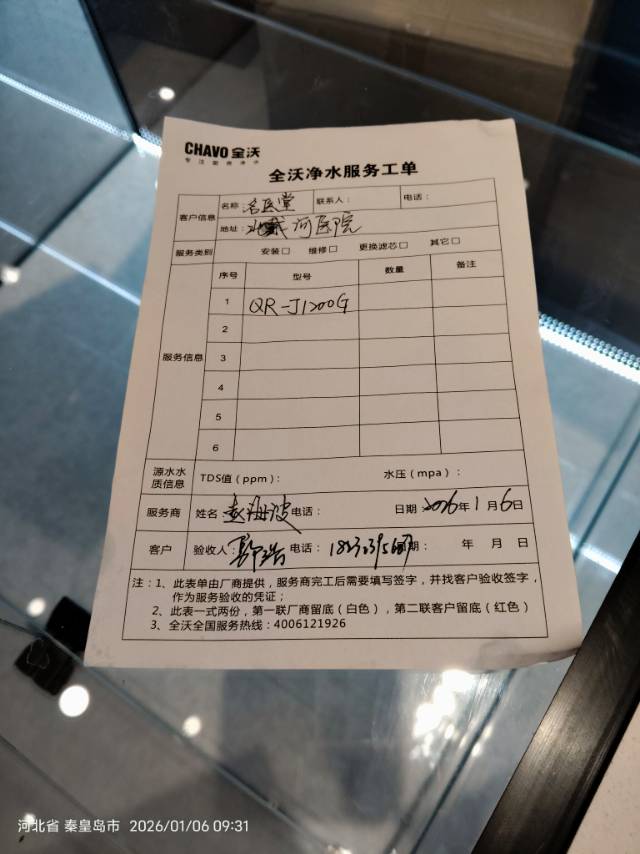 CHAVO 全沃
专注商用净水
全沃净水服务工单
客户信息 名称：名医堂 联系人： 电话：
地址：北戴河医院
服务类别 安装□ 维修□ 更换滤芯□ 其它□
服务信息 序号 型号 数量 备注
1 QR-J1200G
2
3
4
5
6
源水水质信息 TDS值（ppm）： 水压（mpa）：
服务商 姓名 赵海波 电话： 日期：2026年1月6日
客户 验收人： 电话： 期： 年 月 日
注：1、此表单由厂商提供，服务商完工后需要填写签字，并找客户验收签字，
作为服务验收的凭证；
2、此表一式两份，第一联厂商留底（白色），第二联客户留底（红色）
3、全沃全国服务热线：4006121926
河北省 秦皇岛市 2026/01/06 09:31